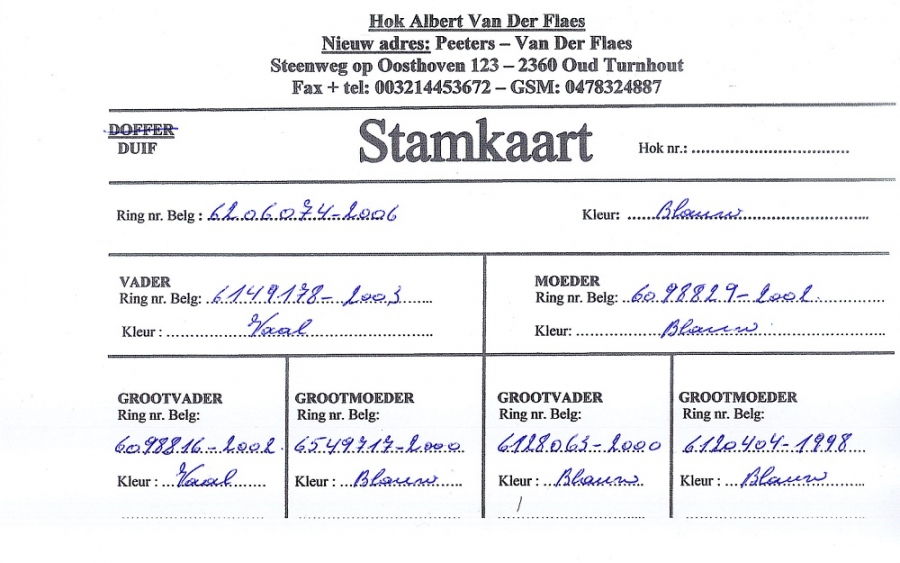 Hok Albert Van Der Flaes
Nieuw adres: Peeters – Van Der Flaes
Steenweg op Oosthoven 123 – 2360 Oud Turnhout
Fax + tel: 003214453672 – GSM: 0478324887
DOFFER
DUIF
Stamkaart
Hok nr.: ....................................
Ring nr. Belg : 6206074-2006
Kleur: Blauw
VADER
Ring nr. Belg: 6149178-2003
Kleur : Vaal
MOEDER
Ring nr. Belg: 6098829-2002
Kleur: Blauw
GROOTVADER
Ring nr. Belg:
6098816-2002
Kleur : Vaal
GROOTMOEDER
Ring nr. Belg:
6549717-2000
Kleur : Blauw
GROOTVADER
Ring nr. Belg:
6128063-2000
Kleur : Blauw
GROOTMOEDER
Ring nr. Belg:
6120404-1998
Kleur : Blauw